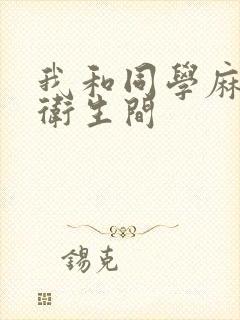 我和同學麻
衛生間
錫克